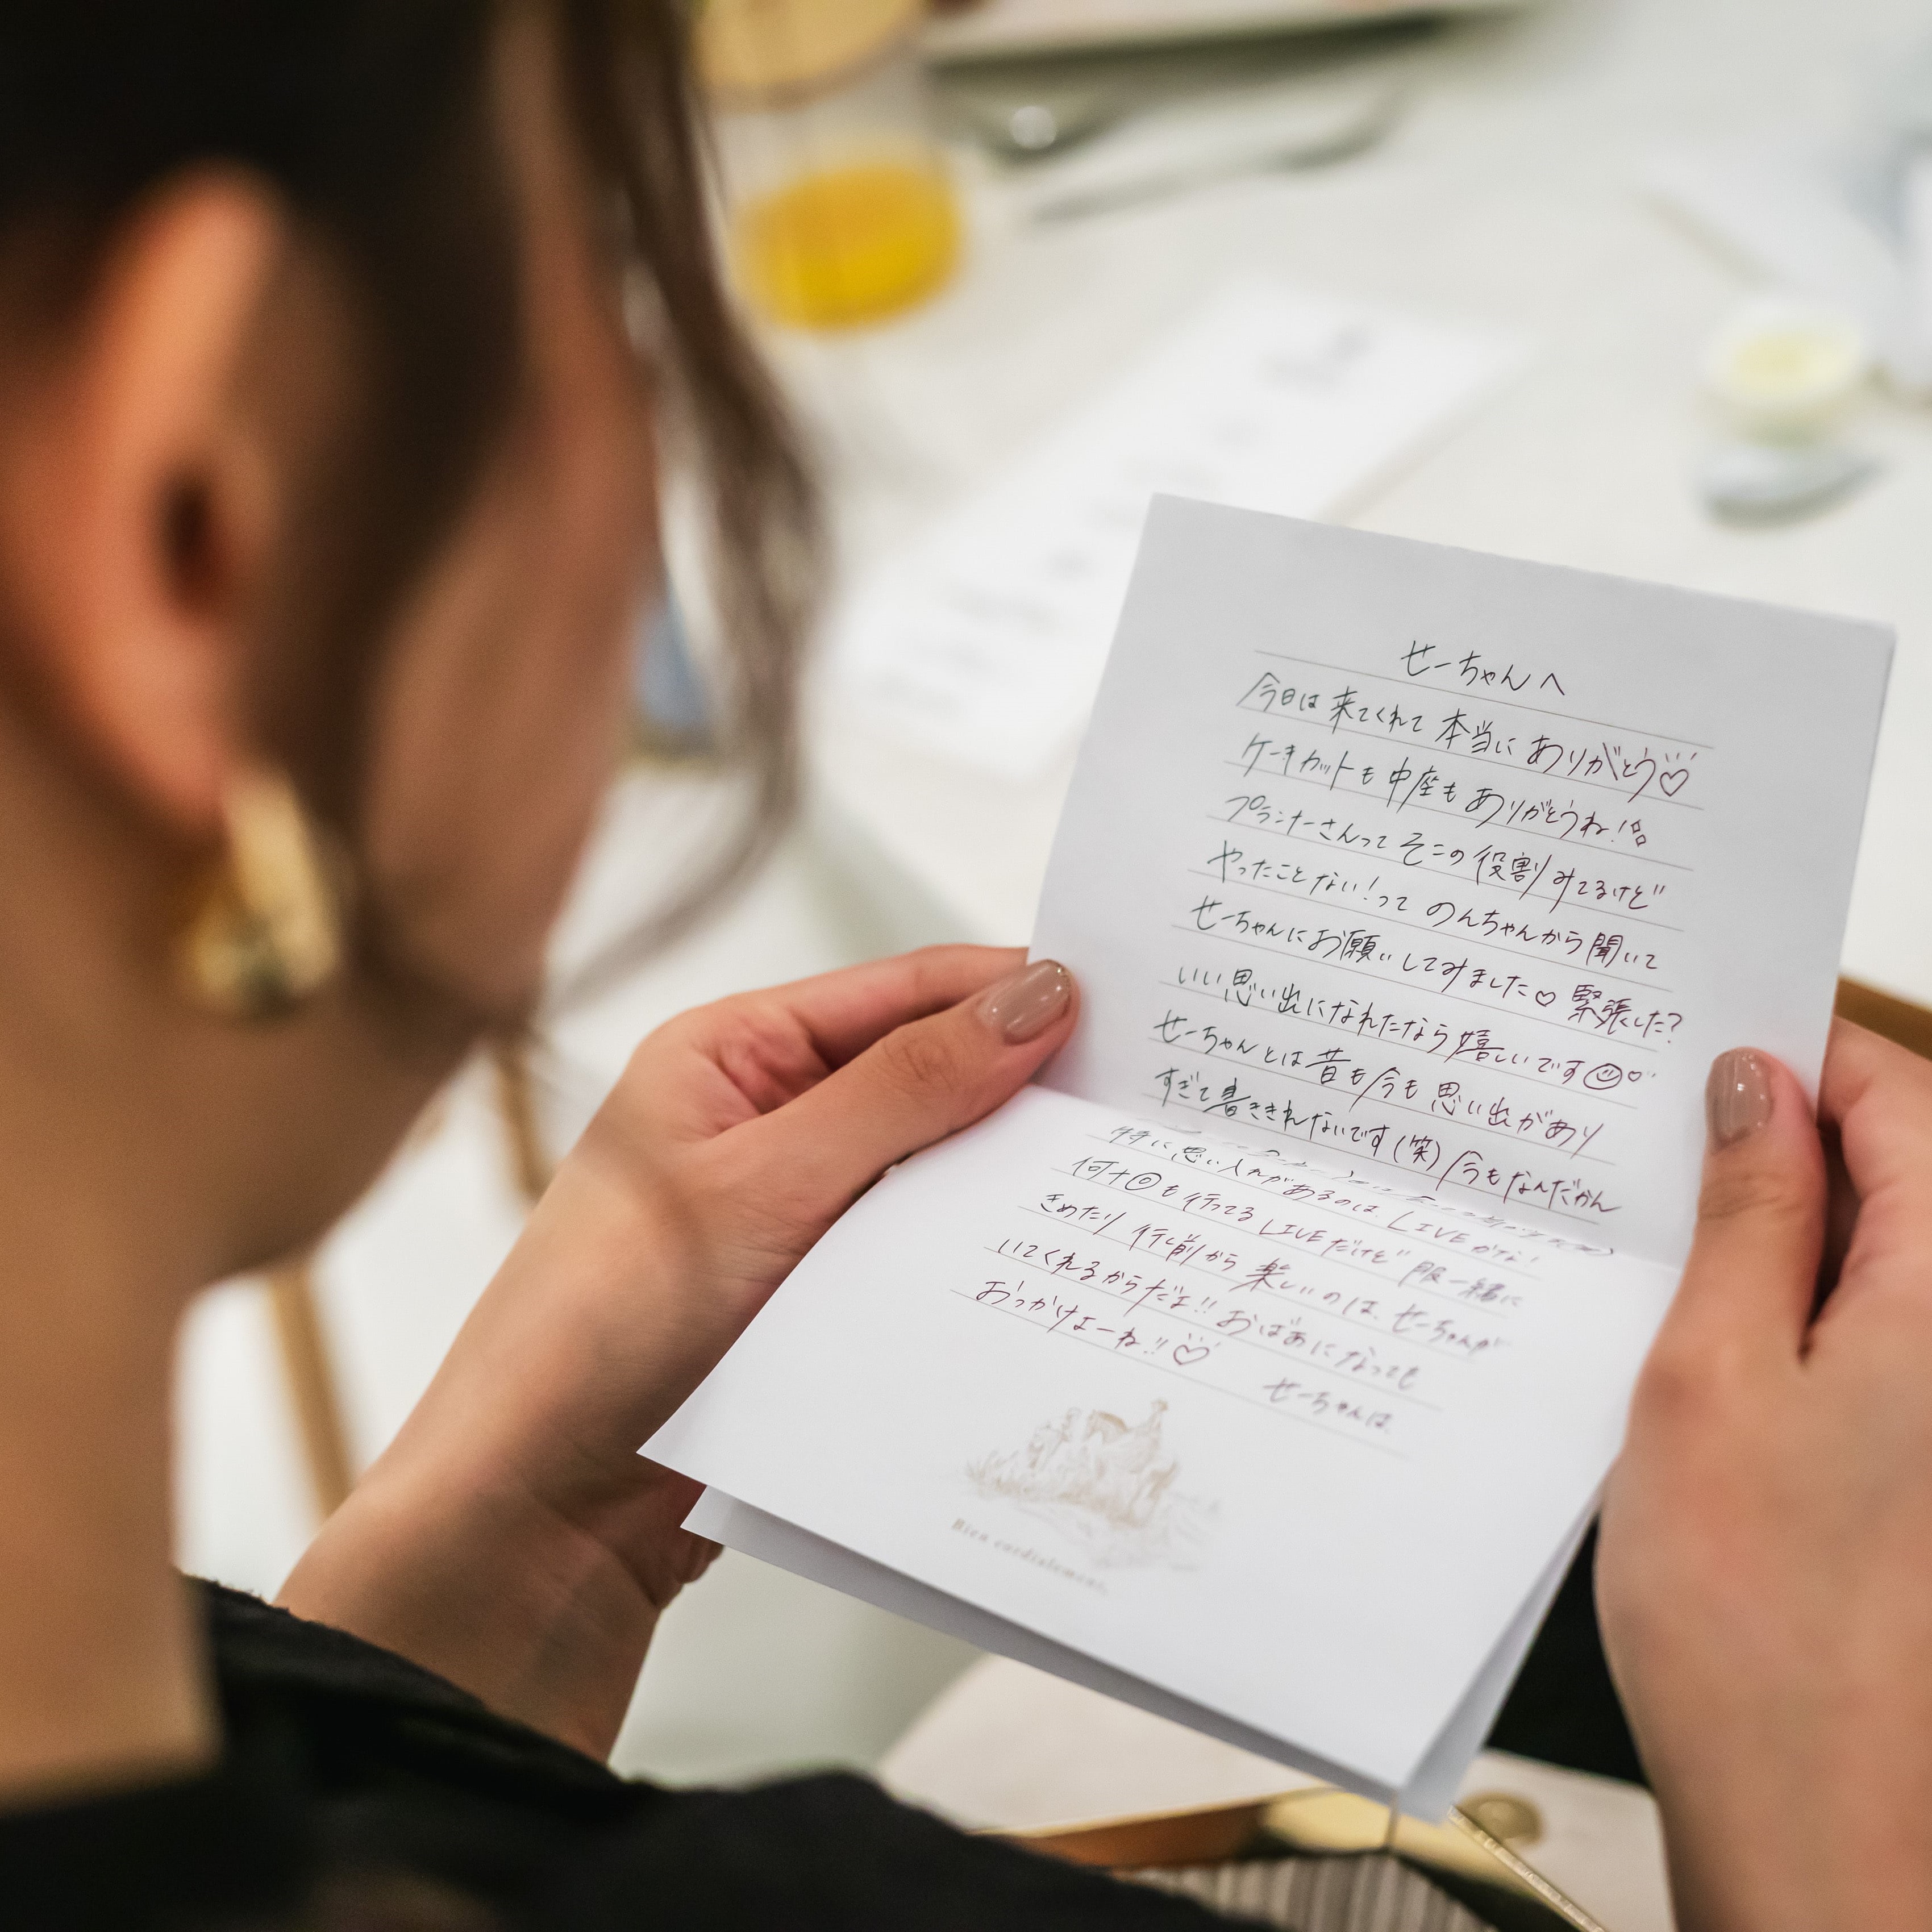 せーちゃんへ
今日は来てくれて本当にありがとう♡
ケーキカットも中座もありがとうね!
プランナーさんってそこの役割みてるけど
やったことない!ってのんちゃんから聞いて
せーちゃんにお願いしてみました♡緊張した?
いい思い出になれたなら嬉しいです
せーちゃんとは昔も今も思い出があり
すぎて書ききれないです(笑)今もなんだかん
特に思い入れがあるのはLIVEかな!
何十回も行ってるLIVEだけど服一緒に
きめたり行く前から楽しいのは、せーちゃんが
いてくれるからだよ!!おばあになっても
おっかけよーね!!♡
せーちゃんは、
Bien cordialement,